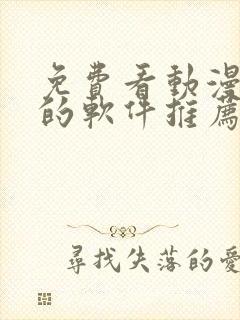 免費看動漫
的軟件推薦
尋找失落的愛